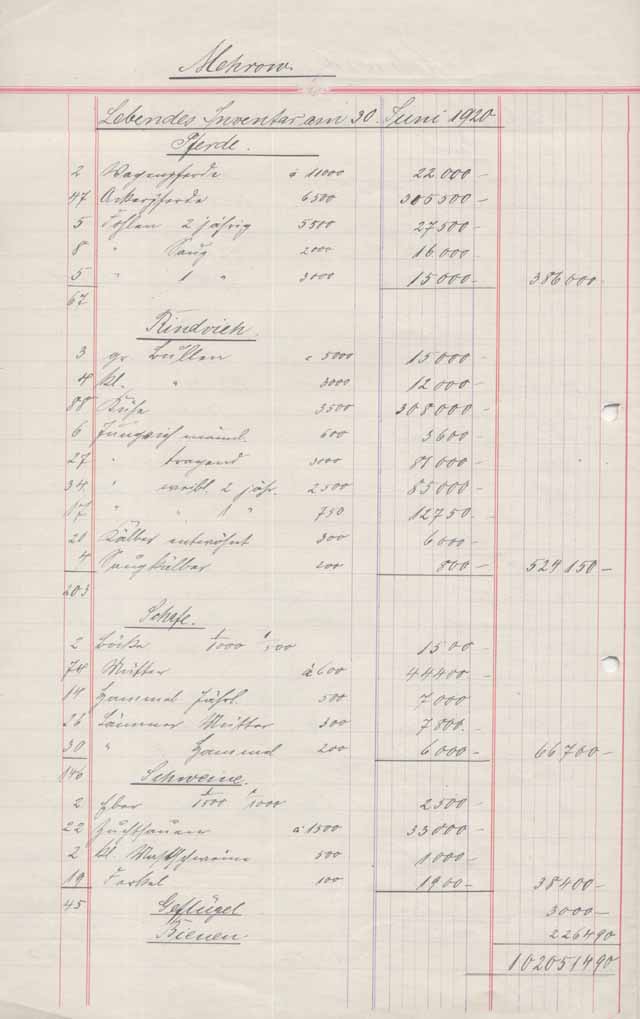 Mehrow.
Lebendes Inventar am 30. Juni 1920
Pferde.
2 Wagenpferde à 11000 22.000 -
47 Ackerpferde 6500 305500 -
5 Fohlen 2 jährig 5500 27500 -
8 " Saug 2000 16.000 -
5 " 1 " 3000 15000 - 386000 -
67
Rindvieh.
3 gr. Bullen à 5000 15000 -
4 kl. " 3000 12000 -
88 Kühe 3500 308000 -
6 Jungvieh männl. 600 3600 -
27 " tragend 3000 81000 -
34 " weibl. 2 jähr. 2500 85000 -
17 " " 1 " 750 12750 -
20 Kälber entwöhnt 300 6000 -
4 Saugkälber 200 800 - 524150 -
203
Schafe.
2 Böcke 1/1000 1/500 1500 -
74 Mutter à 600 44400 -
14 Hammel Jährl. 500 7000
26 Lämmer Mutter 300 7800.
30 " Hammel 200 6000 - 66700 -
146
Schweine.
2 Eber 1/1500 1/1000 2500 -
22 Zuchtsauen à 1500 33000 -
2 kl. Mastschweine 500 1000 -
19 Ferkel 100 1900 - 38400 -
45 Geflügel 3000 -
Bienen. 226490
102051490